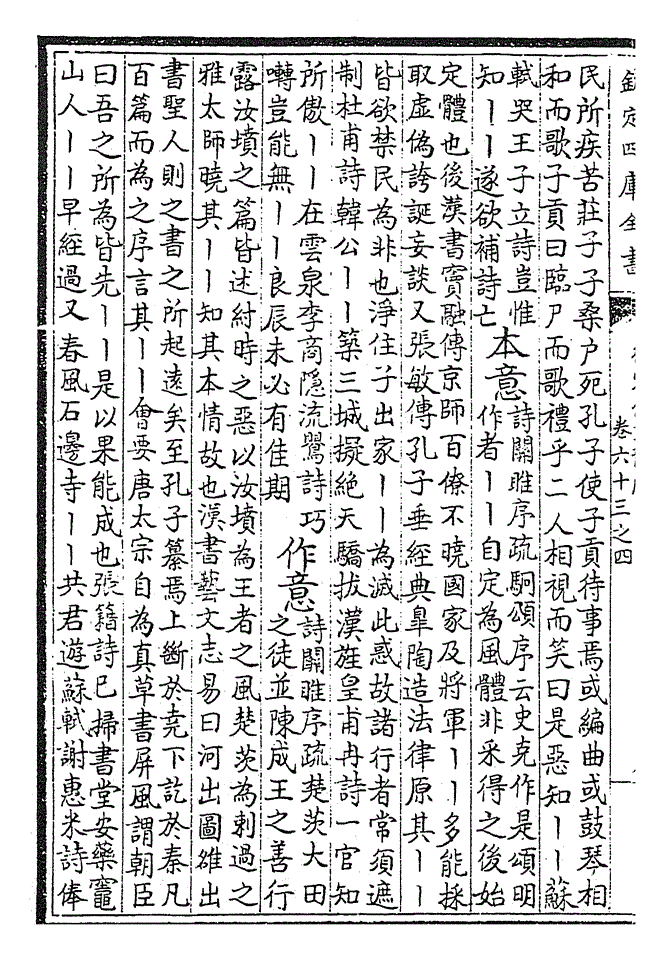 欽定四庫全書
卷六十三之四
民所疾苦莊子子桑户死孔子使子貢待事焉或編曲或鼓琴相
和而歌子貢曰臨尸而歌禮乎二人相視而笑曰是惡知丨丨蘇
軾哭王子立詩豈惟
知丨丨遂欲補詩亡
本意
詩關雎序疏駉頌序云史克作是頌明
作者丨丨自定為風體非采得之後始
定體也後漢書竇融傳京師百僚不曉國家及將軍丨丨多能採
取虛偽誇誕妄談又張敏傳孔子垂經典臯陶造法律原其丨丨
皆欲禁民為非也淨住子出家丨丨為滅此惑故諸行者常須遮
制杜甫詩韓公丨丨築三城擬絶天驕拔漢旌皇甫冉詩一官知
所傲丨丨在雲泉李商隱流鶯詩巧
囀豈能無丨丨良辰未必有佳期
作意
詩關雎序疏楚茨大田
之徒並陳成王之善行
露汝墳之篇皆述紂時之惡以汝墳為王者之風楚茨為刺過之
雅太師曉其丨丨知其本情故也漢書藝文志易曰河出圖雒出
書聖人則之書之所起遠矣至孔子纂焉上斷於堯下訖於秦凡
百篇而為之序言其丨丨會要唐太宗自為真草書屏風謂朝臣
曰吾之所為皆先丨丨是以果能成也張籍詩已掃書堂安藥竈
山人丨丨早經過又春風石邊寺丨丨共君遊蘇軾謝惠米詩俸